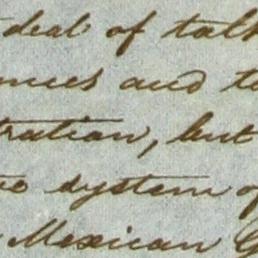 deal of talk
ences and to
tration, but
system of
Mexican G